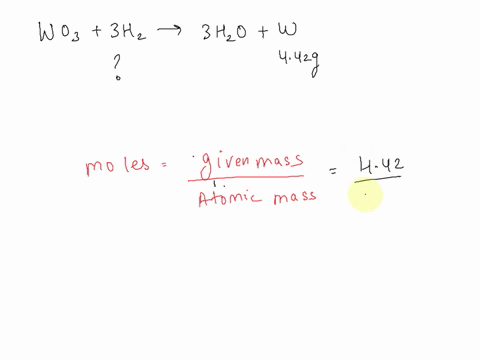 WO₃ + 3H₂ → 3H₂O + W
? 4.42g
moles = given mass / Atomic mass = 4.42